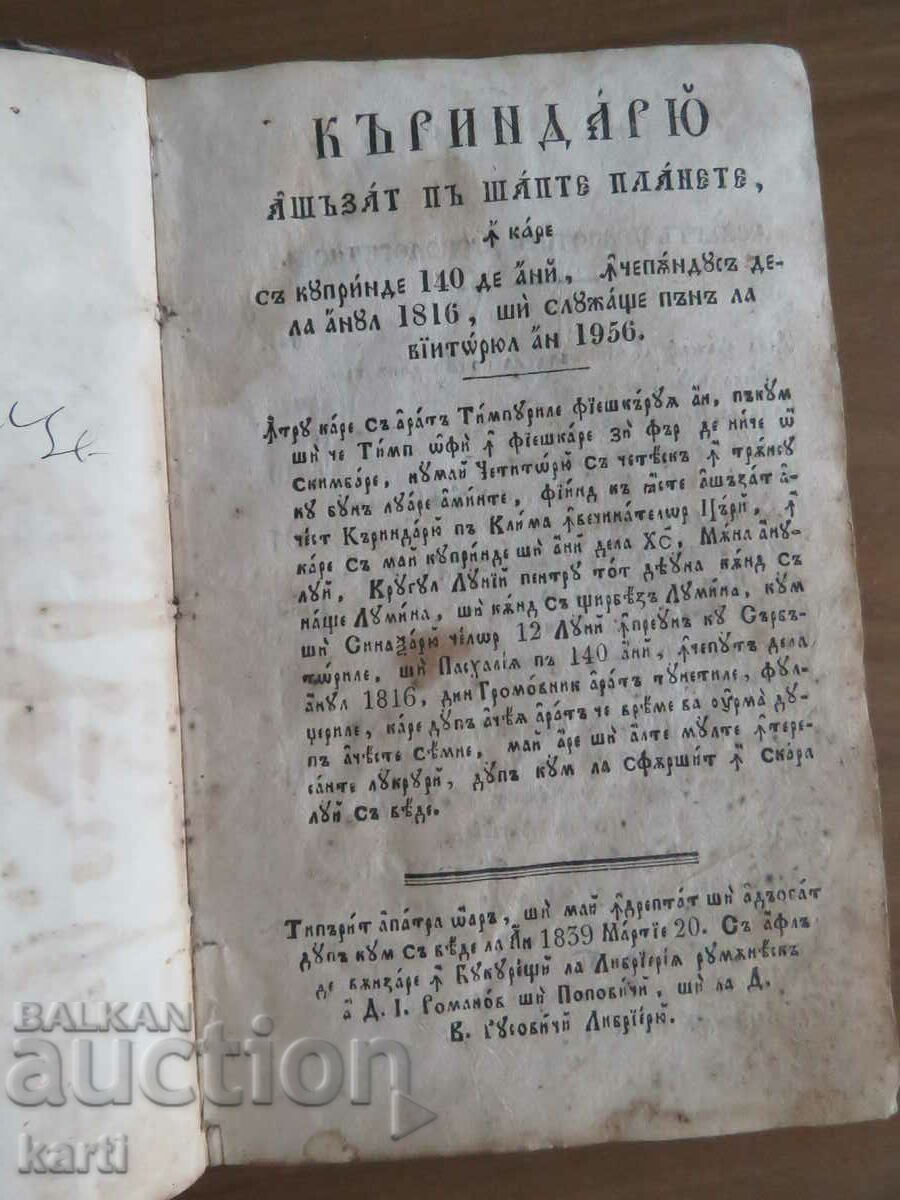 КЪРИНДА́РЮ̆
А̂ШЪЗА́Т ПЪ ША́ПТЕ ПЛА́НЕТЕ,
ꙟ҆ ка́ре
съ купри́нде 140 де а҆́нй, ꙟ҆чепѫ́ндусъ де-
ла а҆́нул 1816, шѝ служа́ще пънъ ла
вїито́рюл а҆́н 1956.
Ꙟ҆тру ка́ре съ а҆ра́тъ Ти́мпуриле фїешкъ́руѧ а҆н, пъку́м
шѝ че Ти́мп ѡ҆фѝ ꙟ҆ фїешка́ре зѝ фъръ де ни́че ѡ҆
скимба́ре, нума́й Четито́рю̆ съ чете́скъ ꙟ҆ тра́нсу
ку бунъ луа́ре а҆ми́нте, фїи́нд къ ꙗ҆́сте а҆шъза́т а҆-
че́ст Къринда́рю̆ пъ Кли́ма ꙟ҆вечина́телѡр Цъ́рй, ꙟ҆
ка́ре съ ма́й купри́нде шѝ а҆́нїй дела Хс҃, Мѫ́на а҆́ну-
луй, Кру́гул Лу́нїй пе́нтру то́т деу́на кѫ́нд съ
на́ще Луми́на, шѝ кѫ́нд съ щирбѣ́зъ Луми́на, кум
шѝ Синаѯа́рю̆ че́лѡр 12 Лу́нй ꙟ҆преу́нъ ку Сърбъ-
то́риле, шѝ Пасха́лїа пъ 140 а҆́нй, ꙟ҆чепу́тъ дела
а҆́нул 1816, дин Громо́вник а҆ра́тъ ту́нетиле, фул-
џериле, ка́ре ду́пъ а҆че́ѧ а҆ра́тъ че врѣ́ме ва ᲂу҆рма̀ ду-
пъ а҆че́сте се́мне, май а҆́ре шѝ а҆́лте му́лте ꙟ҆тере-
са́нте лу́крурй, ду́пъ кум ла сфѫрши́т ꙟ҆ Ска́ра
луй съ ве́де.
Типъри́т а҆па́тра ѡ҆а́ръ, шѝ май ꙟ҆дрепта́т шѝ а҆дъоса́т
ду́пъ кум съ ве́де ла А҆́н 1839 Ма́ртїе 20. Съ а҆́флъ
де вѫнза́ре ꙟ҆ Букуре́щй ла Либрїерїѧ румѫне́скъ
а҆ Д. І. Рома́нов шѝ Попо́вичй, шѝ ла Д.
В. Русо́вичй Либрїе́рю̆.
BALKAN
auction
karti